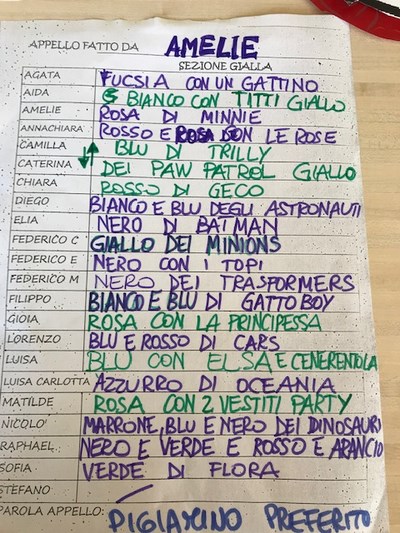 APPELLO FATTO DA AMELIE
SEZIONE GIALLA
AGATA FUCSIA CON UN GATTINO
AIDA BIANCO CON TITTI GIALLO
AMELIE ROSA DI MINNIE
ANNACHIARA ROSSO E ROSA CON LE ROSE
CAMILLA BLU DI TRILLY
CATERINA DEI PAW PATROL GIALLO
CHIARA ROSSO DI GECO
DIEGO BIANCO E BLU DEGLI ASTRONAUTI
ELIA NERO DI BATMAN
FEDERICO C GIALLO DEI MINIONS
FEDERICO E NERO CON I TOPI
FEDERICO M NERO DEI TRASFORMERS
FILIPPO BIANCO E BLU DI GATTOBOY
GIOIA ROSA CON LA PRINCIPESSA
LORENZO BLU E ROSSO DI CARS
LUISA BLU CON ELSA E CENERENTOLA
LUISA CARLOTTA AZZURRO DI OCEANIA
MATILDE ROSA CON 2 VESTITI PARTY
NICOLO' MARRONE, BLU E NERO DEI DINOSAURI
RAPHAEL NERO E VERDE E ROSSO E ARANCIO
SOFIA VERDE DI FLORA
STEFANO
PAROLA APPELLO: PIGIAMINO PREFERITO